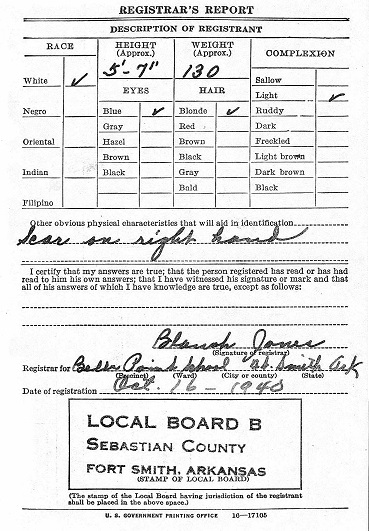 REGISTRAR'S REPORT
DESCRIPTION OF REGISTRANT
RACE HEIGHT (Approx.) WEIGHT (Approx.) COMPLEXION
5'-7" 130
White ✓ EYES HAIR Sallow
Light ✓
Negro Blue ✓ Blonde ✓ Ruddy
Gray Red Dark
Oriental Hazel Brown Freckled
Brown Black Light brown
Indian Black Gray Dark brown
Bald Black
Filipino
Other obvious physical characteristics that will aid in identification
Scar on right hand
I certify that my answers are true; that the person registered has read or has had
read to him his own answers; that I have witnessed his signature or mark and that
all of his answers of which I have knowledge are true, except as follows:
Blanch Jones
(Signature of registrar)
Registrar for Belle Point School Ft. Smith Ark
(Precinct) (Ward) (City or county) (State)
Date of registration Oct. 16 - 1940
LOCAL BOARD B
SEBASTIAN COUNTY
FORT SMITH, ARKANSAS
(STAMP OF LOCAL BOARD)
(The stamp of the Local Board having jurisdiction of the registrant
shall be placed in the above space.)
U. S. GOVERNMENT PRINTING OFFICE 16—17105